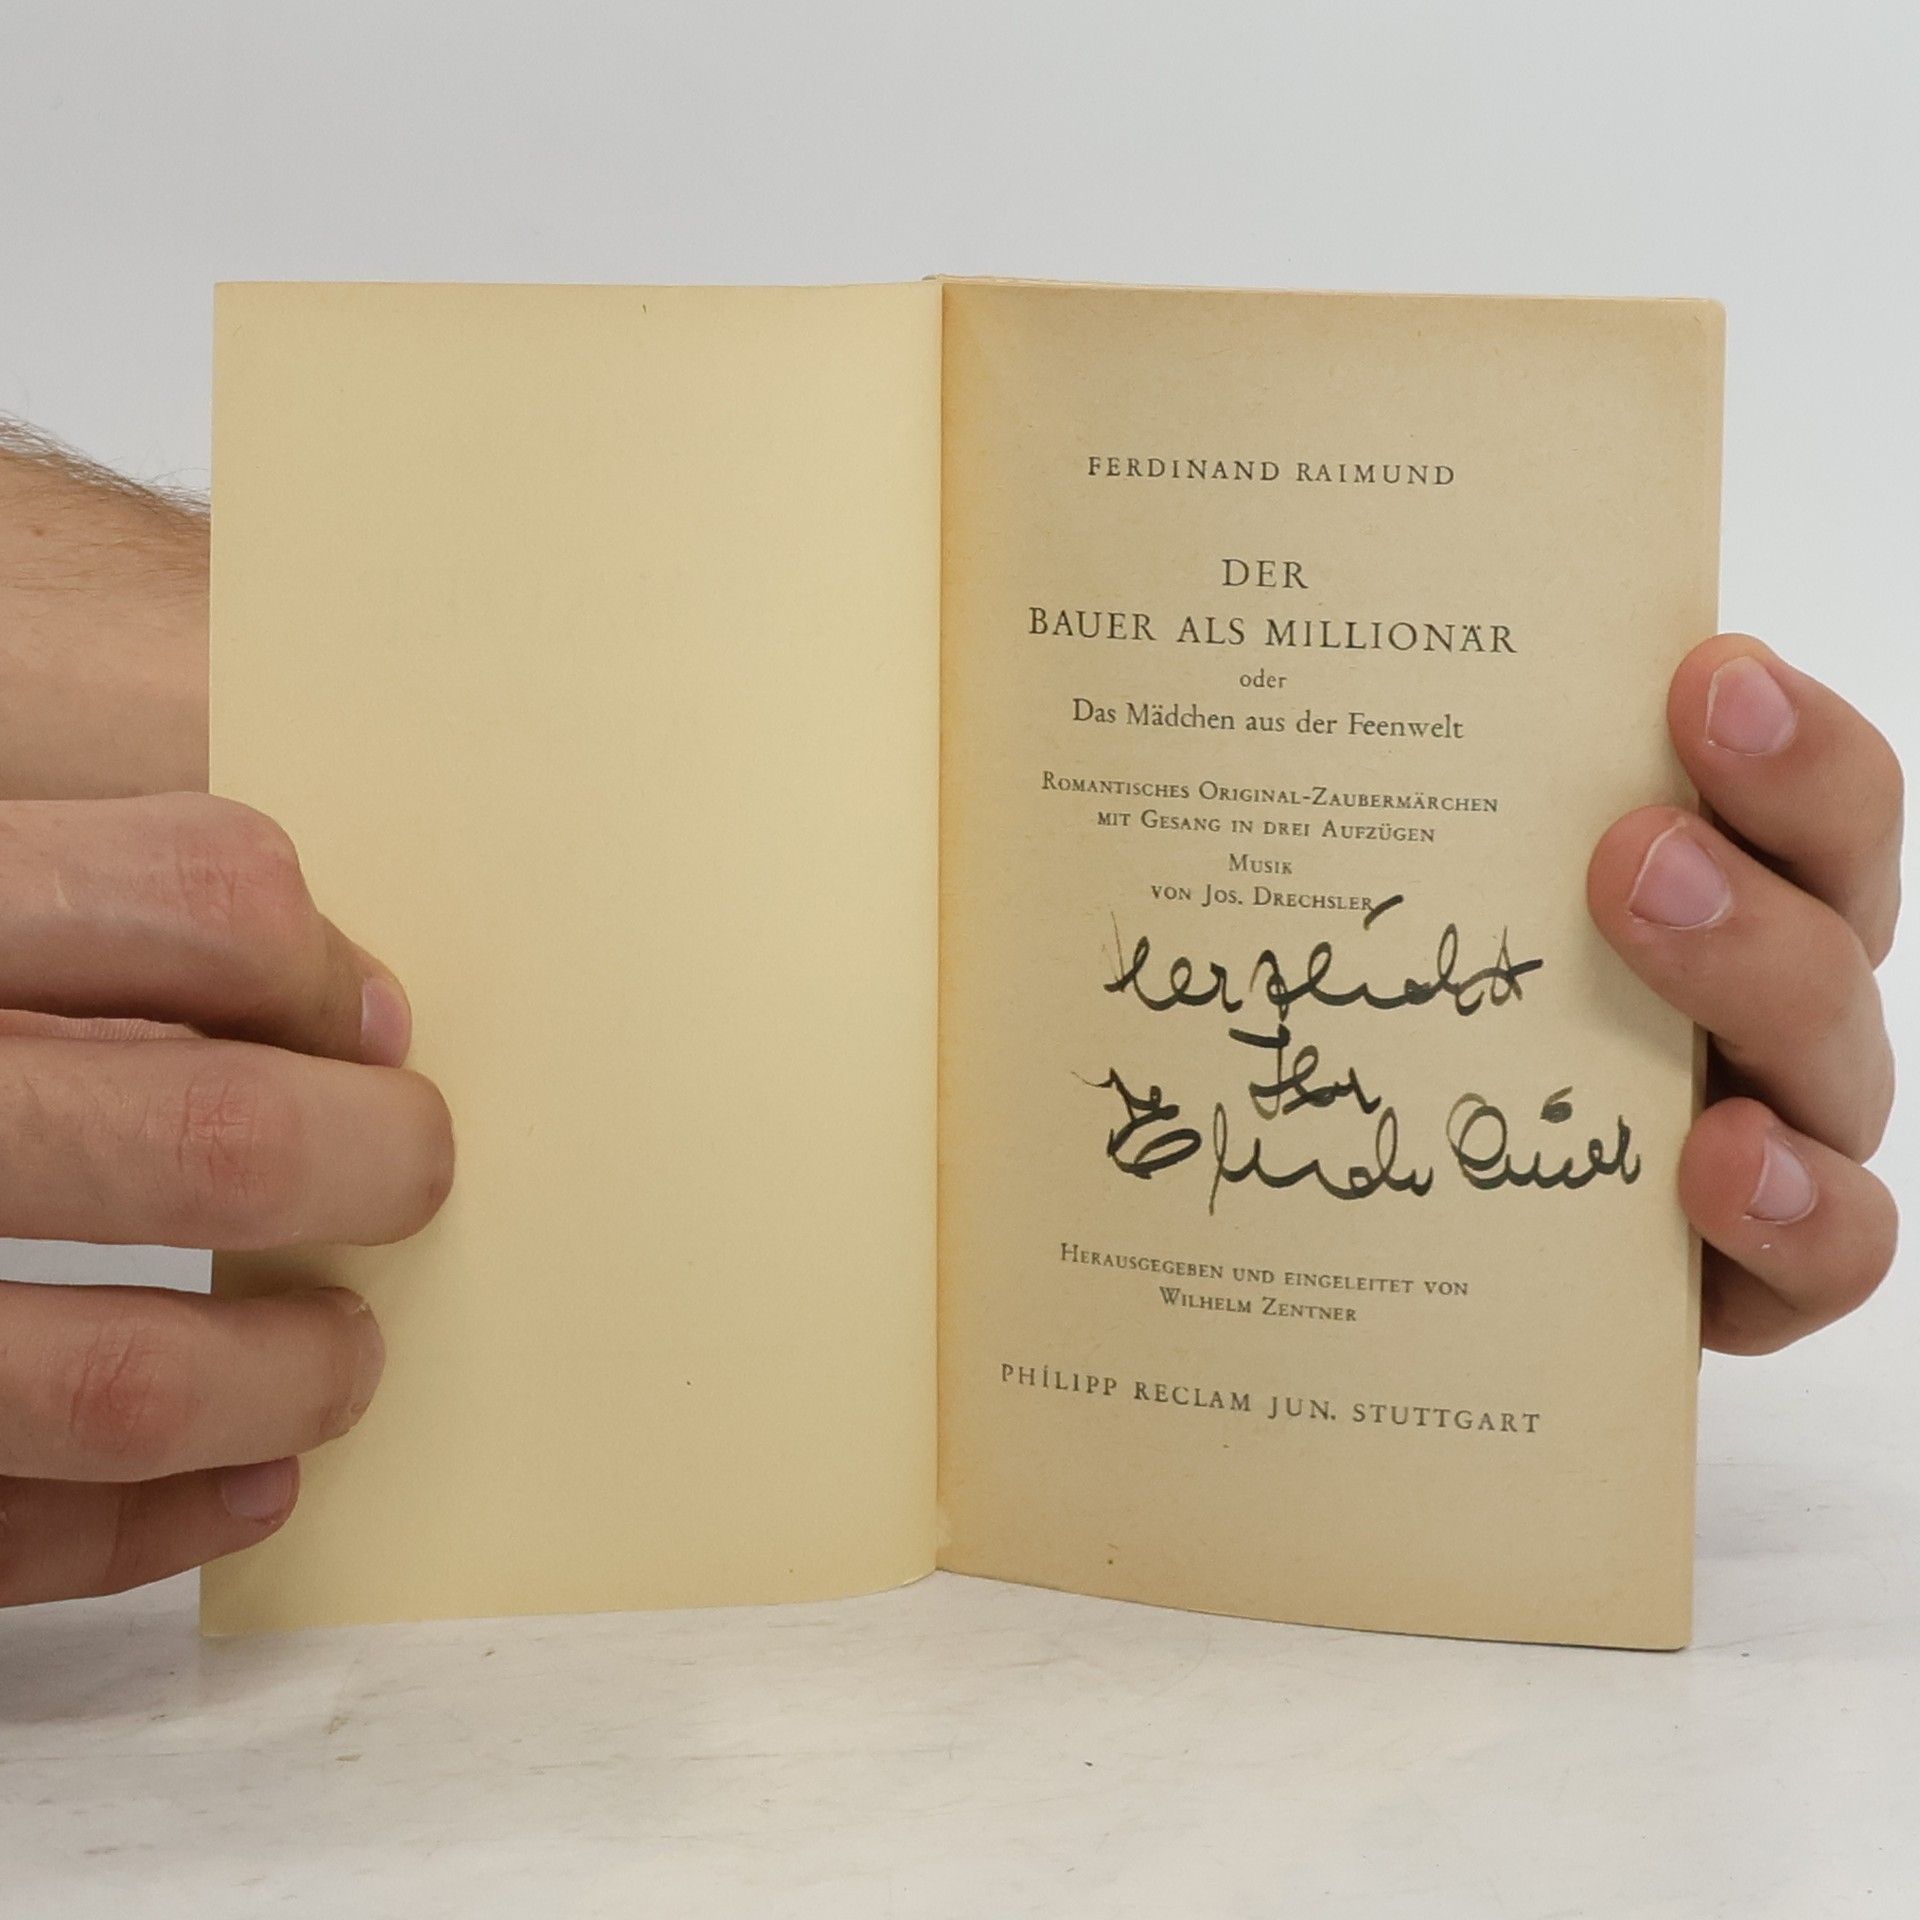 FERDINAND RAIMUND
DER
BAUER ALS MILLIONÄR
oder
Das Mädchen aus der Feenwelt
ROMANTISCHES ORIGINAL-ZAUBERMÄRCHEN
MIT GESANG IN DREI AUFZÜGEN
MUSIK
VON JOS. DRECHSLER
herzlichst
Ihr
HERAUSGEGEBEN UND EINGELEITET VON
WILHELM ZENTNER
PHILIPP RECLAM JUN. STUTTGART